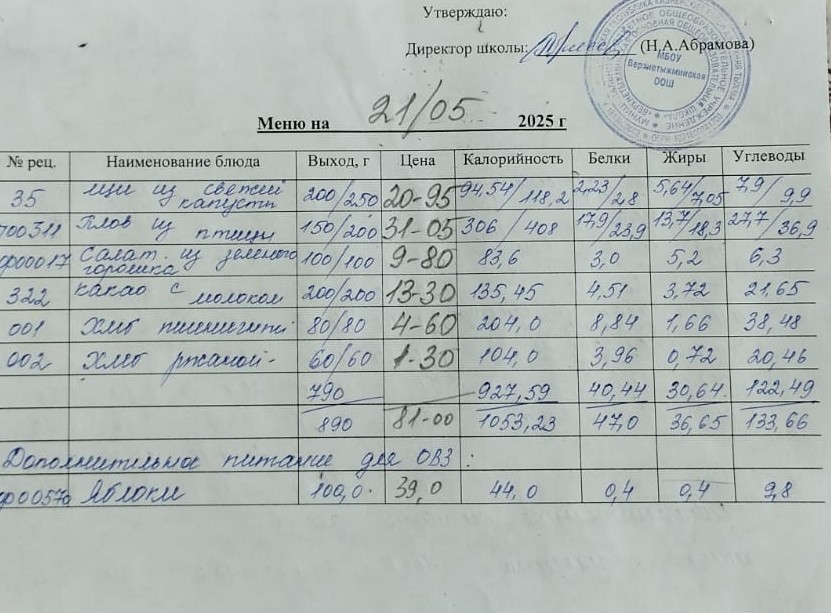 Утверждаю:
Директор школы: (Н.А.Абрамова)
МБОУ
Верхнетыжминская
ООШ
Меню на 21/05 2025 г
№ рец. Наименование блюда Выход, г Цена Калорийность Белки Жиры Углеводы
35 щи из свежей капусты 200/250 20-95 94,54/118,2 2,23/2,8 5,64/7,05 7,9/9,9
700311 Плов из птицы 150/200 31-05 306/408 17,9/23,9 13,7/18,3 27,7/36,9
ф00017 Салат из зеленого горошка 100/100 9-80 83,6 3,0 5,2 6,3
322 какао с молоком 200/200 13-30 135,45 4,51 3,72 21,65
001 Хлеб пшеничный 80/80 4-60 204,0 8,84 1,66 38,48
002 Хлеб ржаной 60/60 1-30 104,0 3,96 0,72 20,46
790 927,59 40,44 30,64 122,49
890 81-00 1053,23 47,0 36,65 133,66
Дополнительное питание для ОВЗ:
ф00570 Яблоки 100,0 39,0 44,0 0,4 0,4 9,8